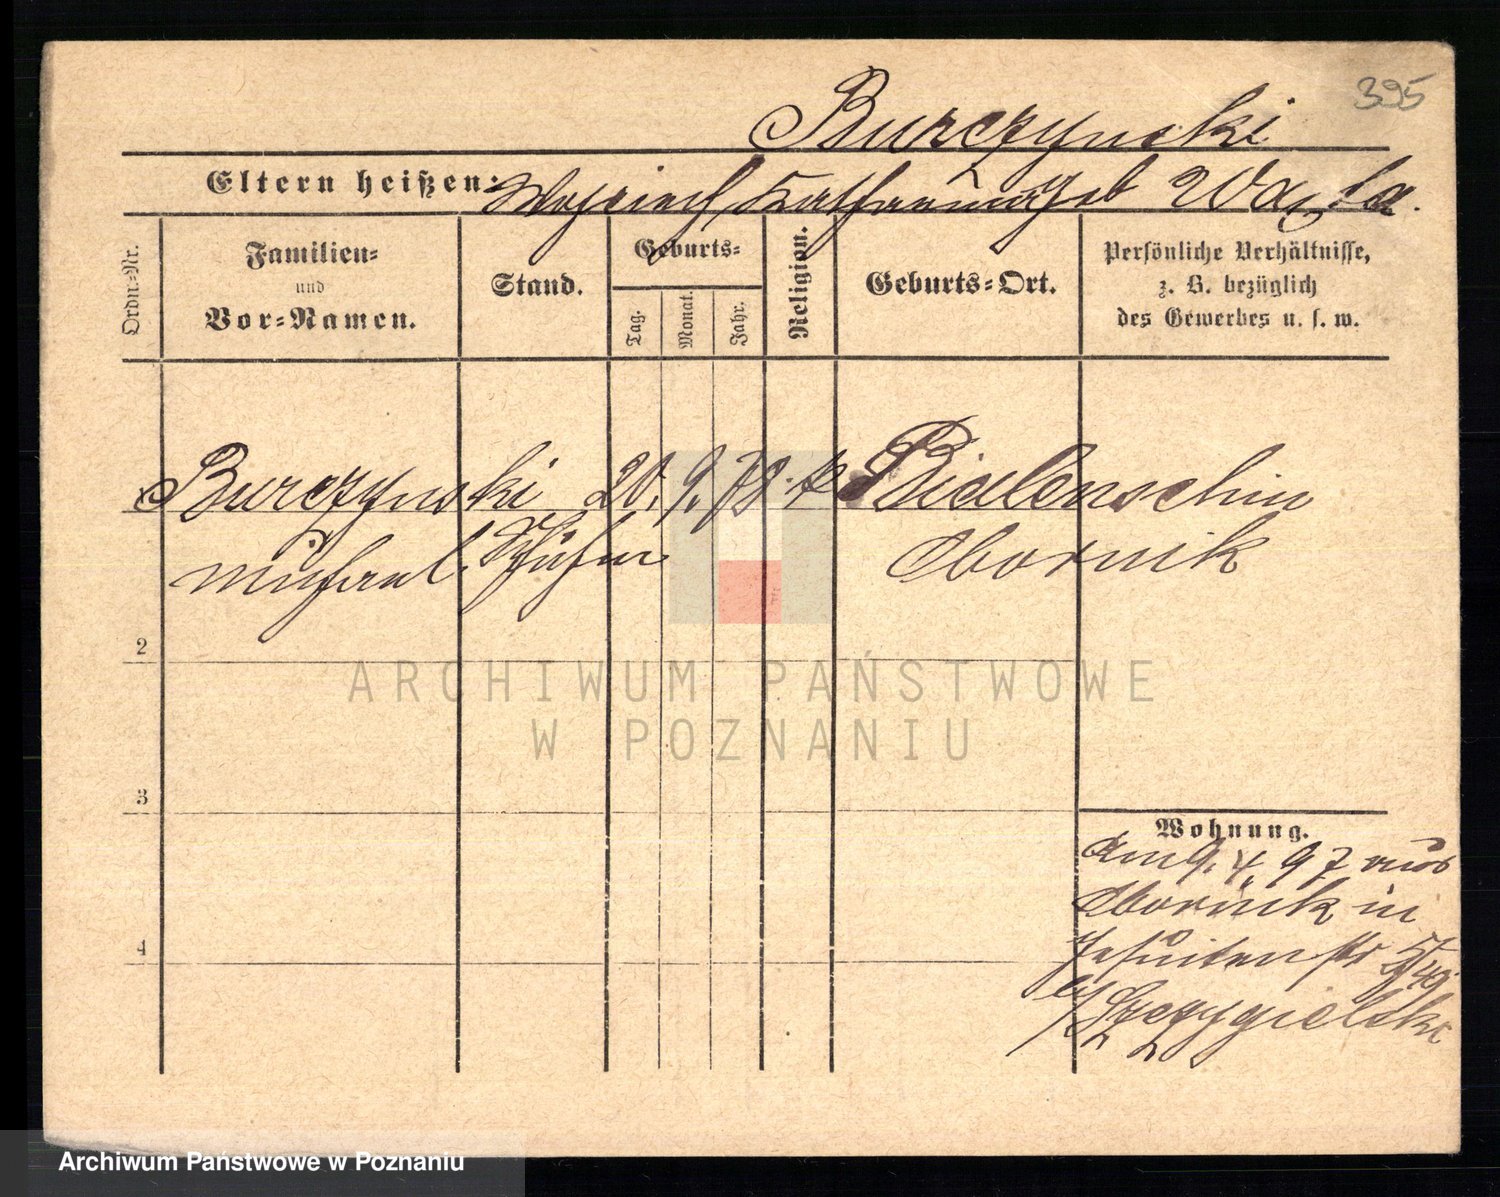 395
Burczynski
Eltern heißen: Wojciech, Katharina geb
Ordn=Nr.
Familien=
und
Vor=Namen.
Stand.
Geburts=
Tag.
Monat.
Jahr.
Religion.
Geburts=Ort.
Persönliche Verhältnisse,
z. B. bezüglich
des Gewerbes u. s. w.
Burczynski 20. 9. 78. k Bialenschin
Michael. Obornik
2
3
4
Wohnung.
Am 9. 4. 97 aus
Obornik in
Jesuitenstr
b/ Szczygielski
ARCHIWUM PAŃSTWOWE
W POZNANIU
Archiwum Państwowe w Poznaniu